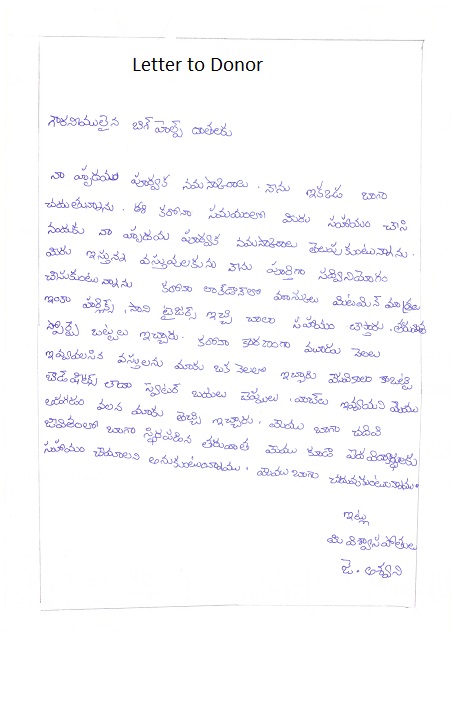 Letter to Donor
గౌరవనీయులైన బిగ్ హెల్ప్ దాతలకు
నా హృదయ పూర్వక నమస్కారాలు. నేను ఇక్కడ బాగా
చదువుతున్నాను. ఈ కరోనా సమయంలో మీరు సహాయం చేసి
నందుకు నా హృదయ పూర్వక నమస్కారాలు తెలుపుకుంటున్నాను.
మీరు ఇస్తున్న వస్తువులకును నేను పూర్తిగా సద్వినియోగం
చేసుకుంటున్నాను కరోనా లాక్‌డౌన్‌లో మాస్కులు విటమిన్ మాత్రలు
ఇంకా హార్లిక్స్, ఇచ్చి చాలా సహాయం చేస్తారు. తరువాత
స్పోర్ట్స్ బట్టలు ఇచ్చారు. కరోనా కారణంగా మూడు నెలలు
ఇవ్వవలసిన వస్తులను మాకు ఒక నెలలో ఇచ్చారు కాబట్టి
లేదా స్వెటర్ బదులు చెప్పులు. ఇవ్వమని మేము
అడగడం వలన మాకు తెచ్చి ఇచ్చారు. మేము బాగా చదివి
జీవితంలో బాగా స్థిరపడిన తరువాత మేము కూడా పేద విద్యార్థులకు
సహాయం చేయాలని అనుకుంటున్నాము. మేము బాగా చదువుకుంటున్నాము.
ఇట్లు
మీ విశ్వాసపాత్రులు
జె. అశ్వని